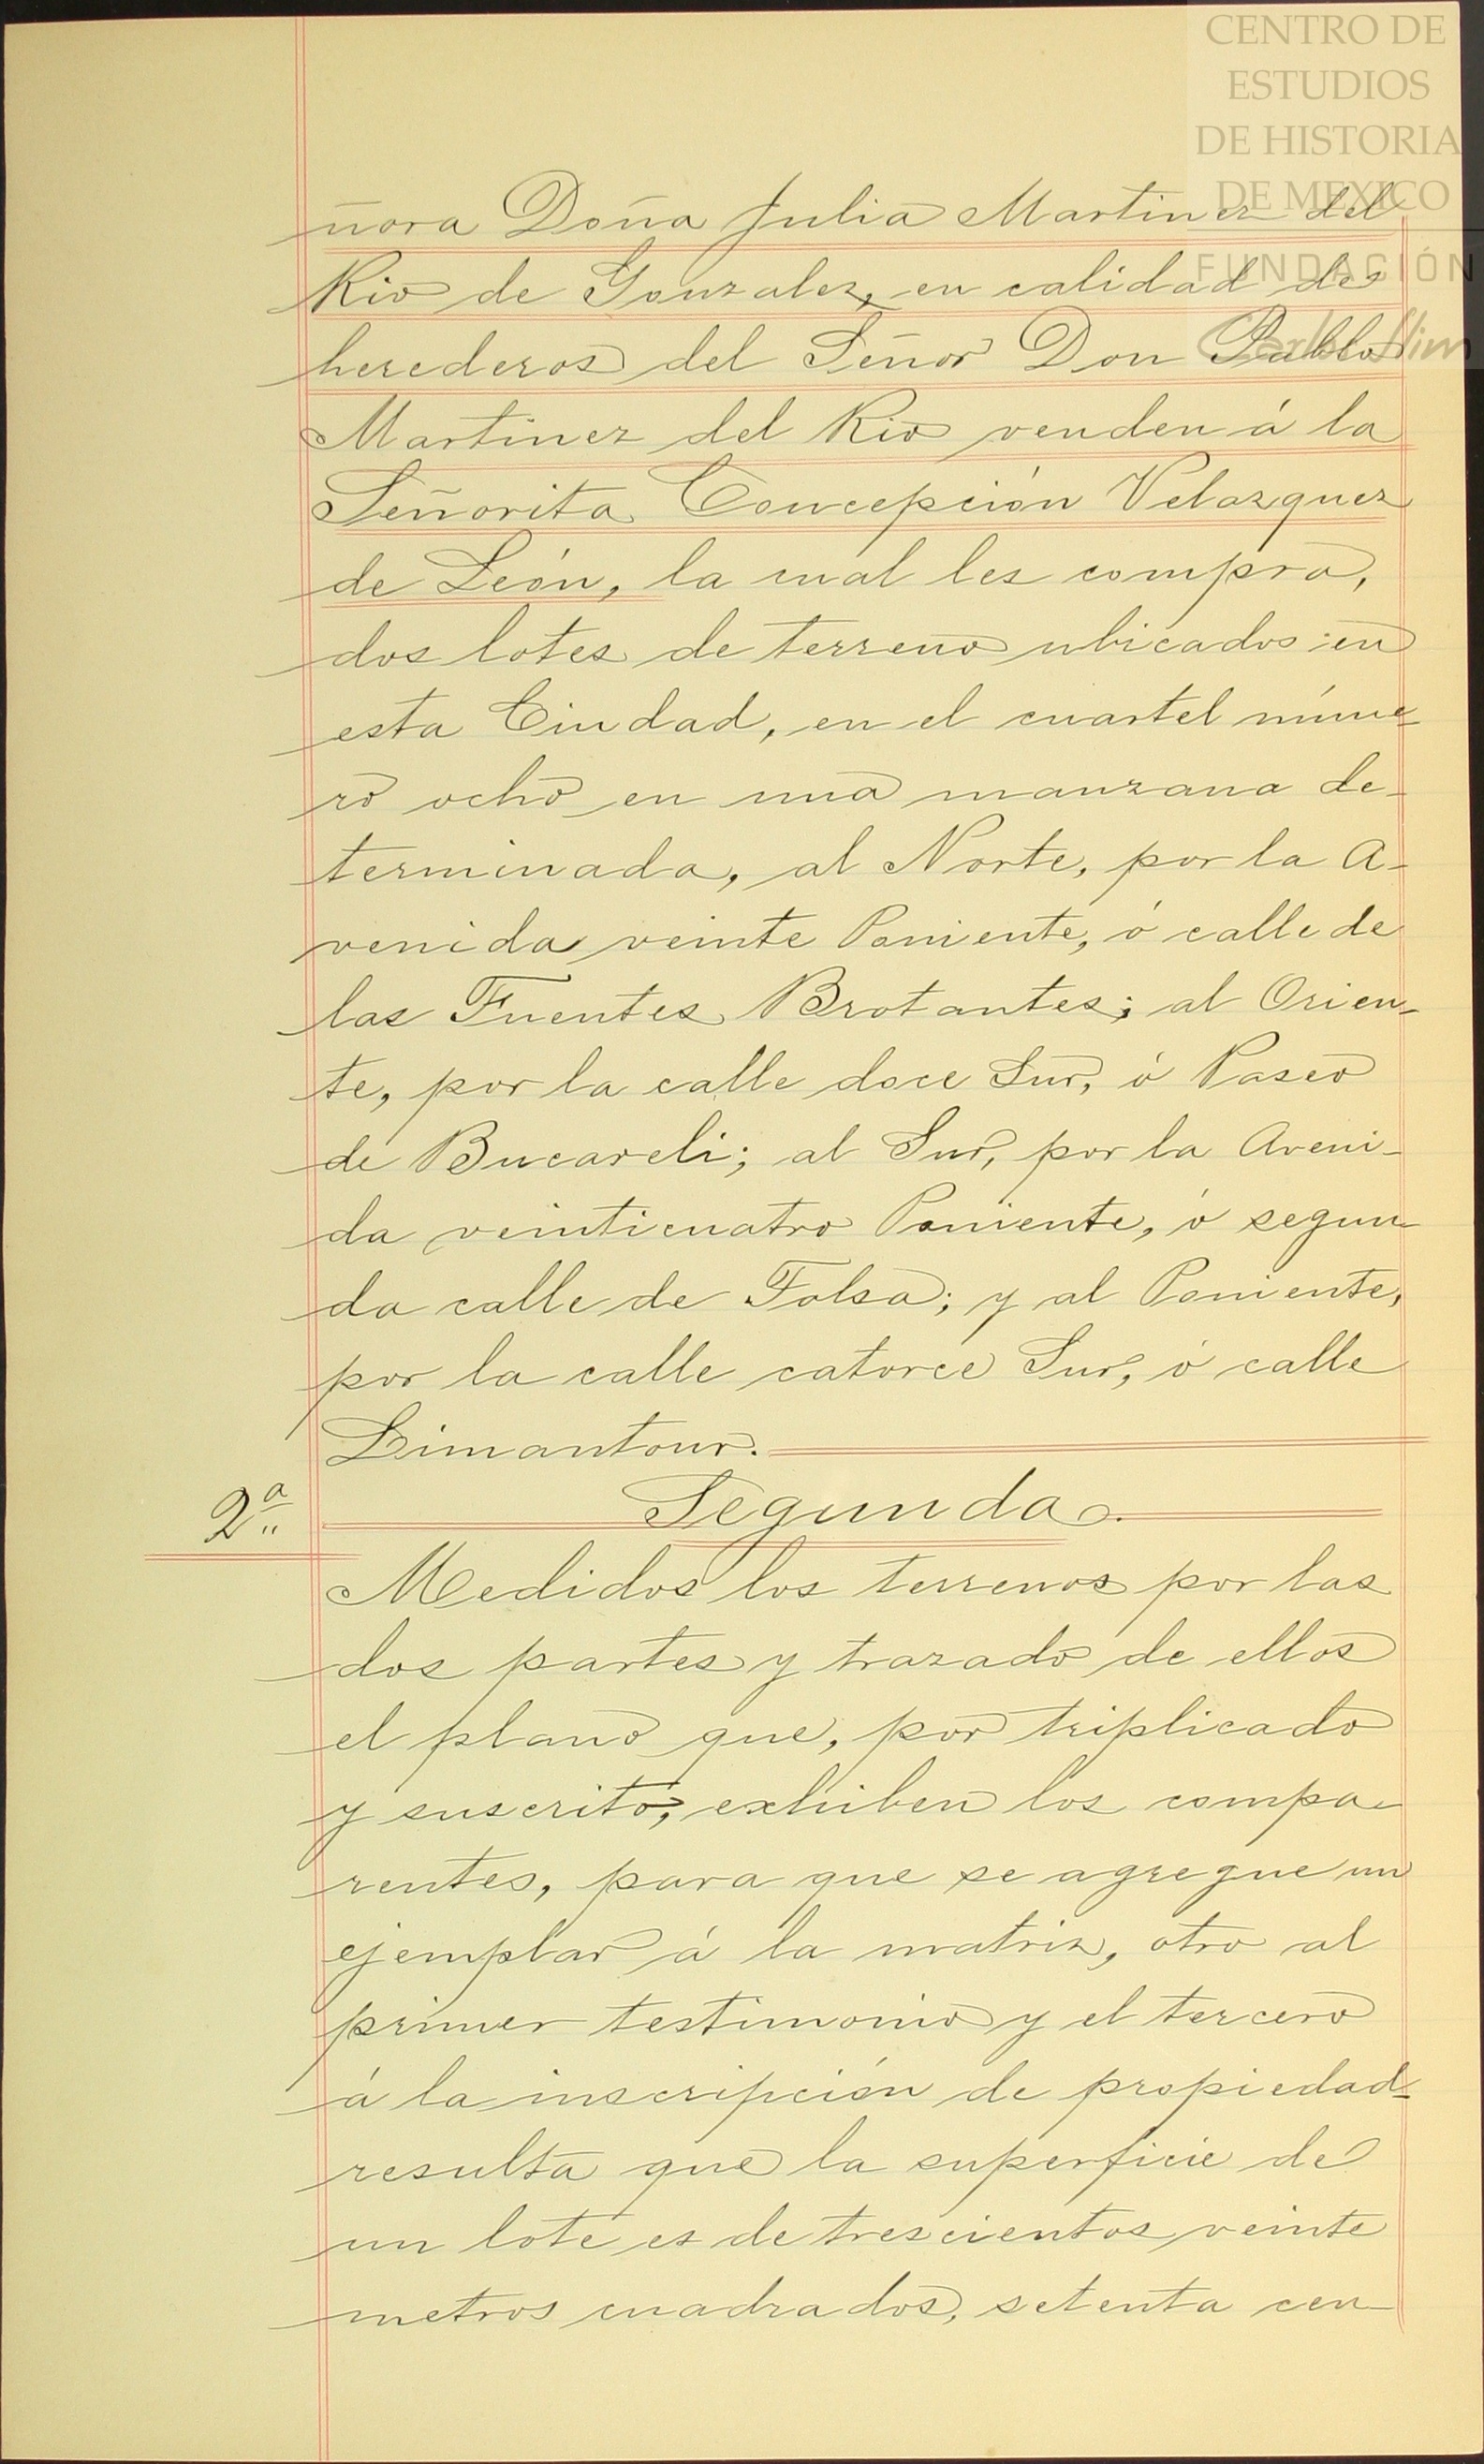 CENTRO DE
ESTUDIOS
DE HISTORIA
DE MEXICO
FUNDACIÓN
Carlos Slim
ñora Doña Julia Martinez del
Rio de Gonzalez, en calidad de
herederos del Señor Don Pablo
Martinez del Rio venden á la
Señorita Concepción Velazquez
de León, la cual les compra,
dos lotes de terreno ubicados en
esta Ciudad, en el cuartel núme-
ro ocho en una manzana de-
terminada, al Norte, por la A-
venida veinte Poniente, ó calle de
las Fuentes Brotantes; al Orien-
te, por la calle doce Sur, ó Paseo
de Bucareli; al Sur, por la Aveni-
da veinticuatro Poniente, ó segun-
da calle de Tolsa; y al Poniente,
por la calle catorce Sur, ó calle
Limantour.
2ª
Segunda.
Medidos los terrenos por las
dos partes y trazado de ellos
el plano que, por triplicado
y suscrito, exhiben los compa-
rentes, para que se agregue un
ejemplar á la matriz, otro al
primer testimonio y el tercero
á la inscripción de propiedad-
resulta que la superficie de
un lote es de trescientos veinte
metros cuadrados, setenta cen-